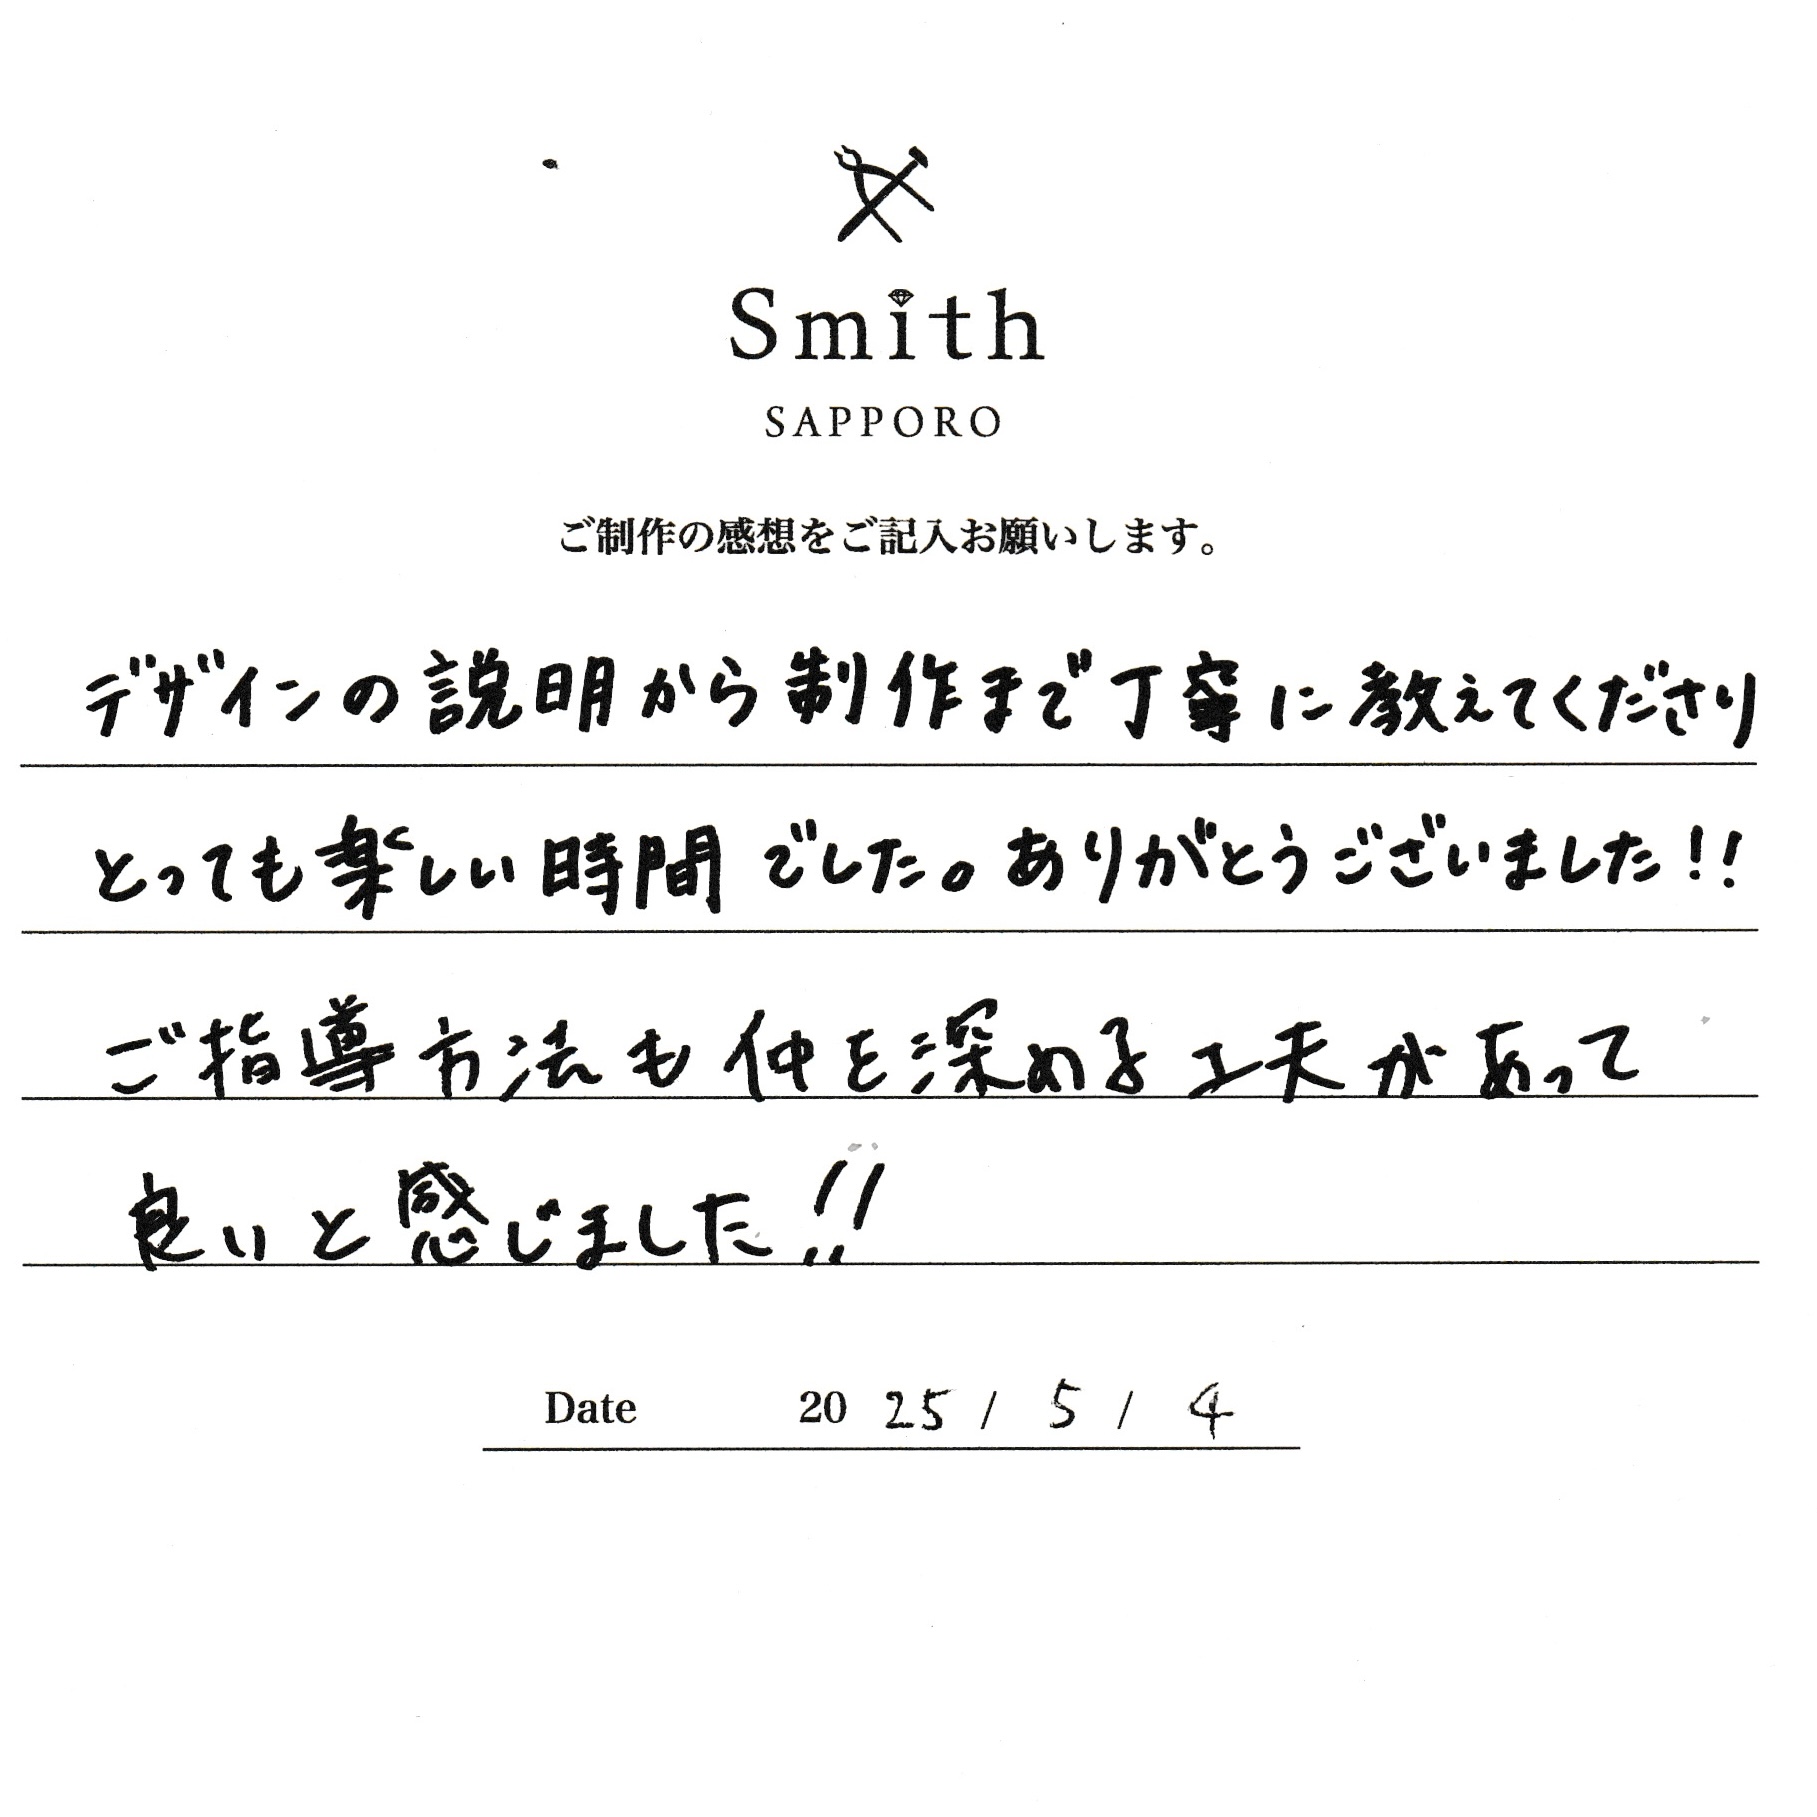 Smith
SAPPORO
ご制作の感想をご記入お願いします。
デザインの説明から制作まで丁寧に教えてくださり
とっても楽しい時間でした。ありがとうございました!!
ご指導方法も仲を深める工夫があって
良いと感じました!!
Date 2025/5/4